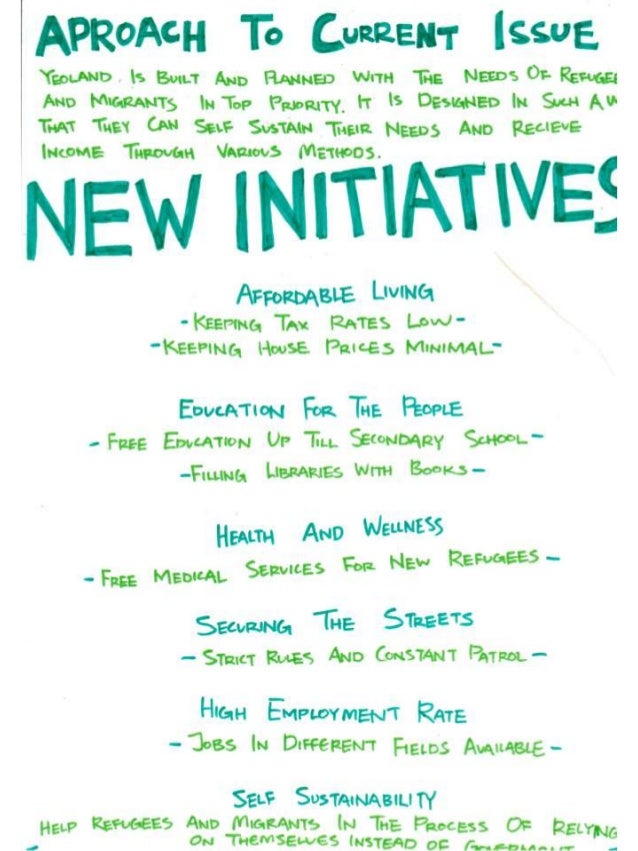 APROACH TO CURRENT ISSUE
YEOLAND. IS BUILT AND PLANNED WITH THE NEEDS OF REFUGEE
AND MIGRANTS IN TOP PRIORITY. IT IS DESIGNED IN SUCH A W
THAT THEY CAN SELF SUSTAIN THEIR NEEDS AND RECIEVE
INCOME THROUGH VARIOUS METHODS.
NEW INITIATIVES
AFFORDABLE LIVING
- KEEPING TAX RATES LOW -
- KEEPING HOUSE PRICES MINIMAL -
EDUCATION FOR THE PEOPLE
- FREE EDUCATION UP TILL SECONDARY SCHOOL -
- FILLING LIBRARIES WITH BOOKS -
HEALTH AND WELLNESS
- FREE MEDICAL SERVICES FOR NEW REFUGEES -
SECURING THE STREETS
- STRICT RULES AND CONSTANT PATROL -
HIGH EMPLOYMENT RATE
- JOBS IN DIFFERENT FIELDS AVAILABLE -
SELF SUSTAINABILITY
HELP REFUGEES AND MIGRANTS IN THE PROCESS OF RELYING
- ON THEMSELVES INSTEAD OF